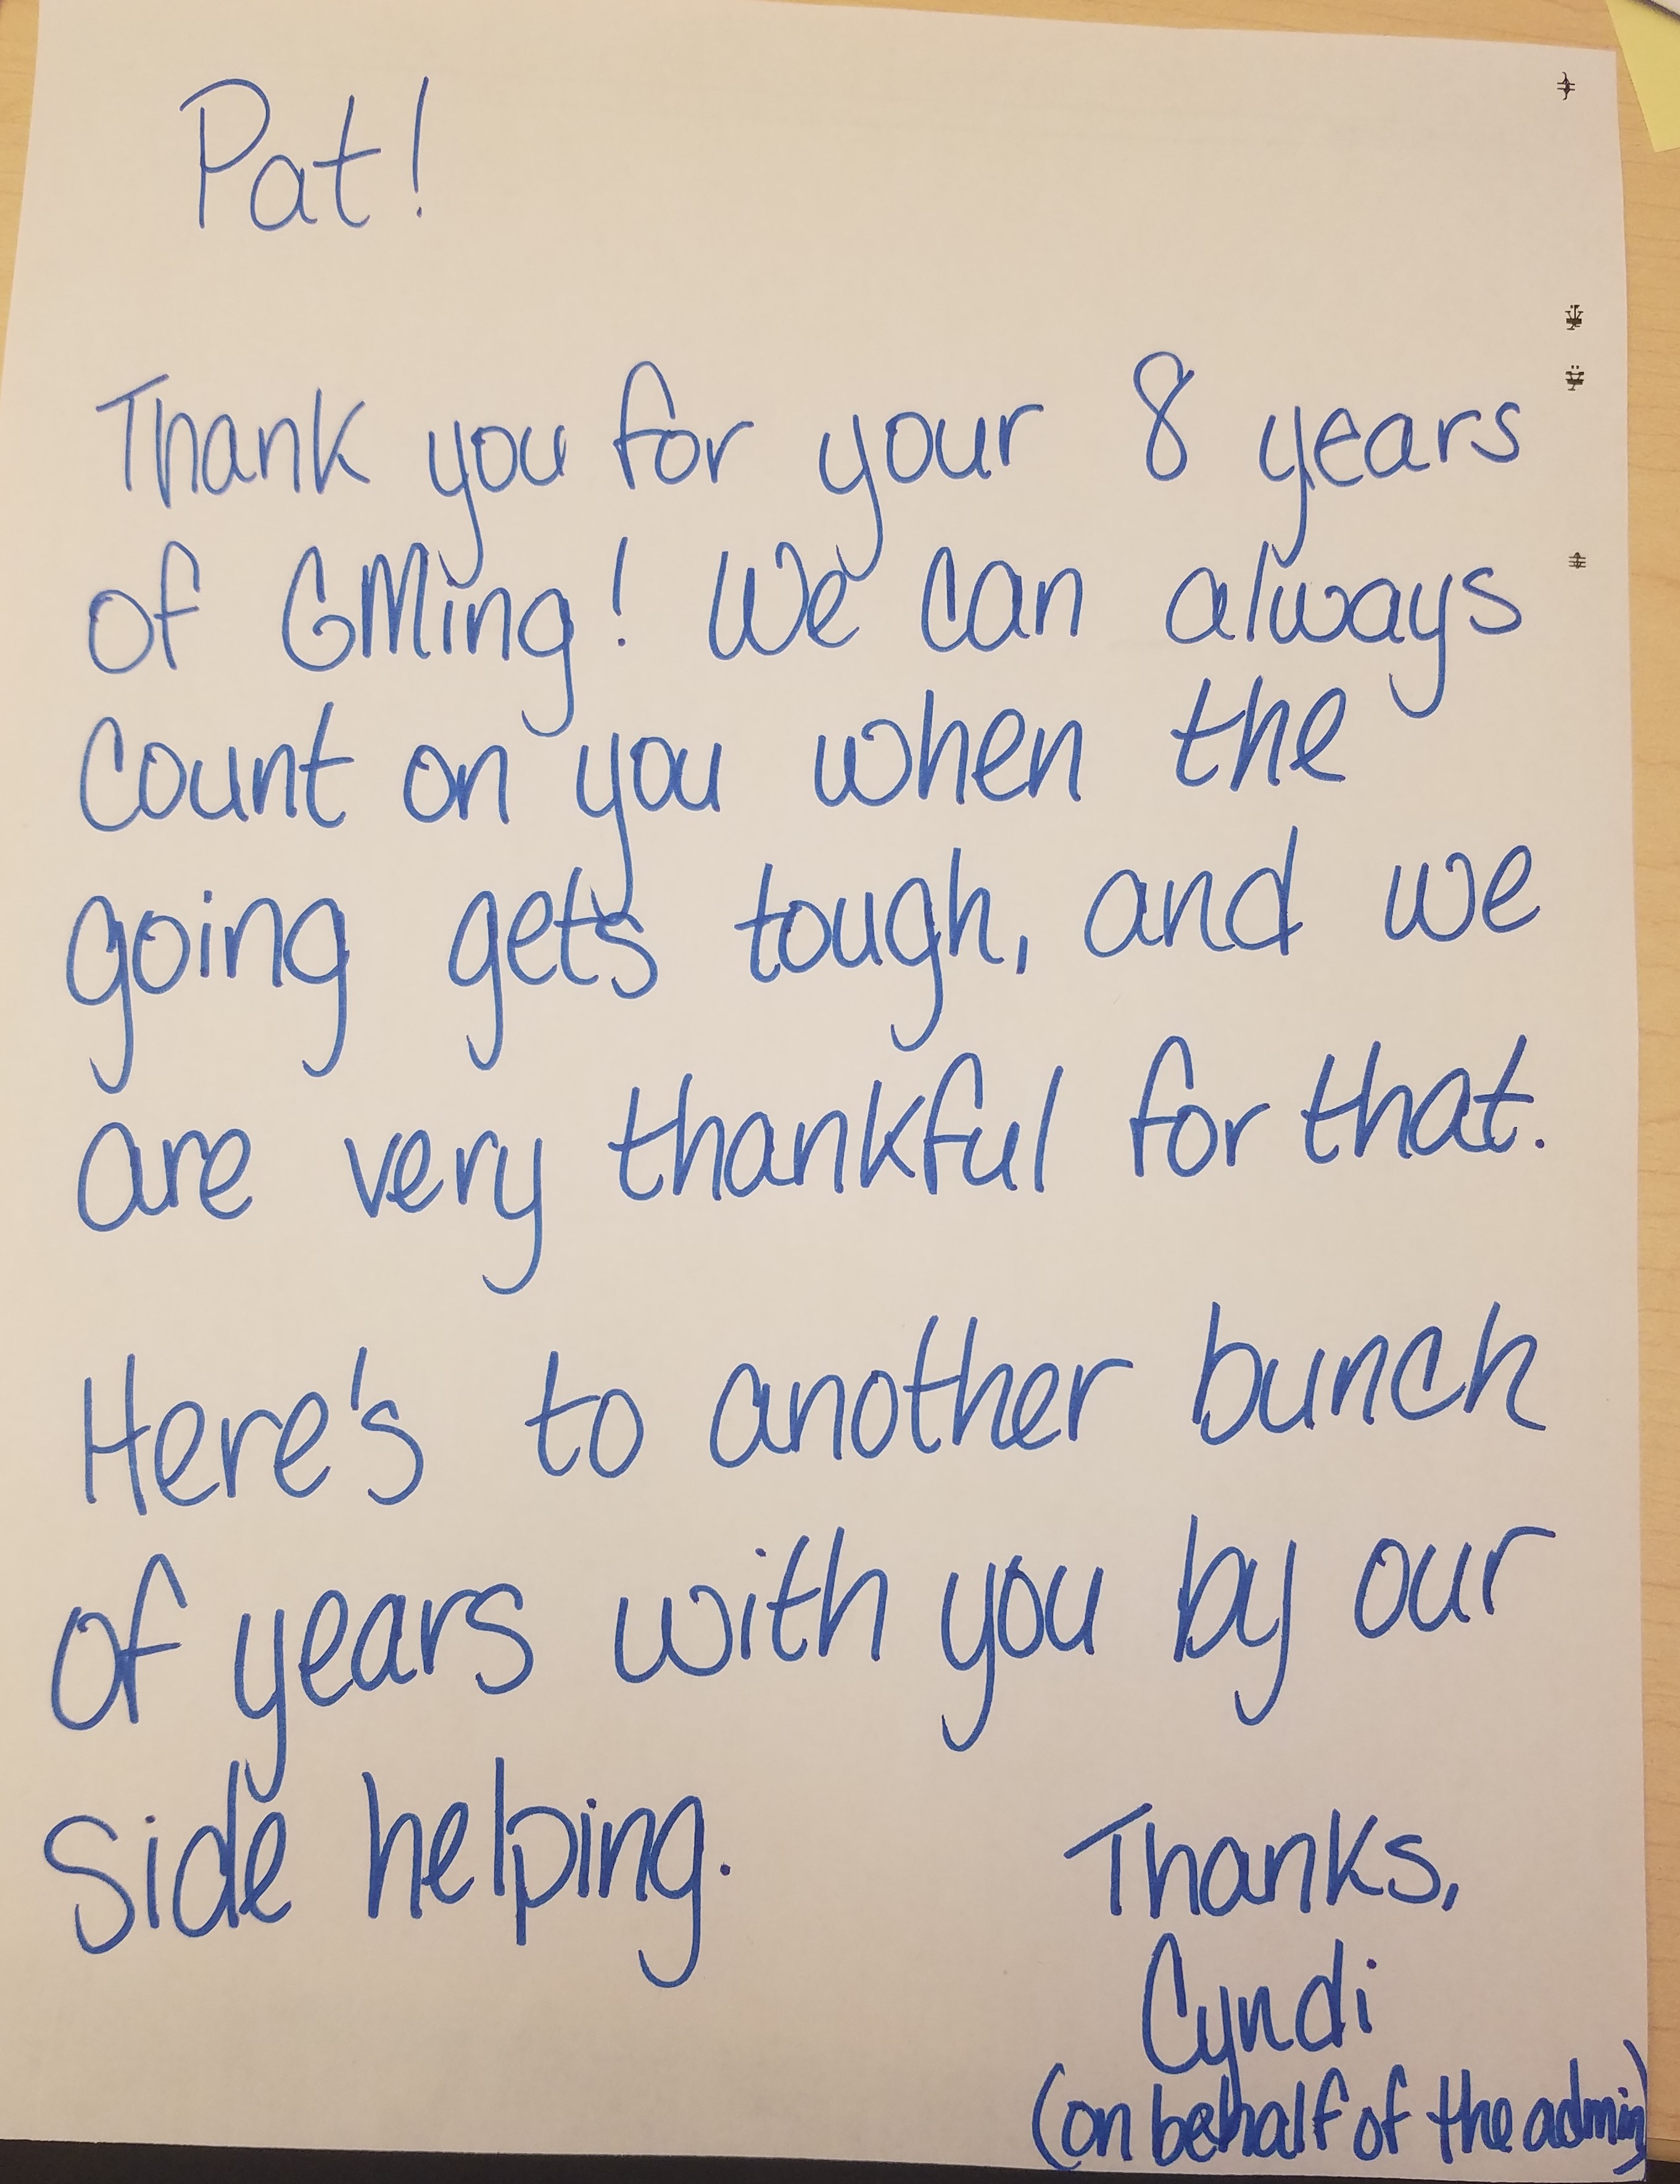 Pat!
Thank you for your 8 years
of GMing! We can always
count on you when the
going gets tough, and we
are very thankful for that.
Here's to another bunch
of years with you by our
side helping.
Thanks,
Cyndi
(on behalf of the admin)